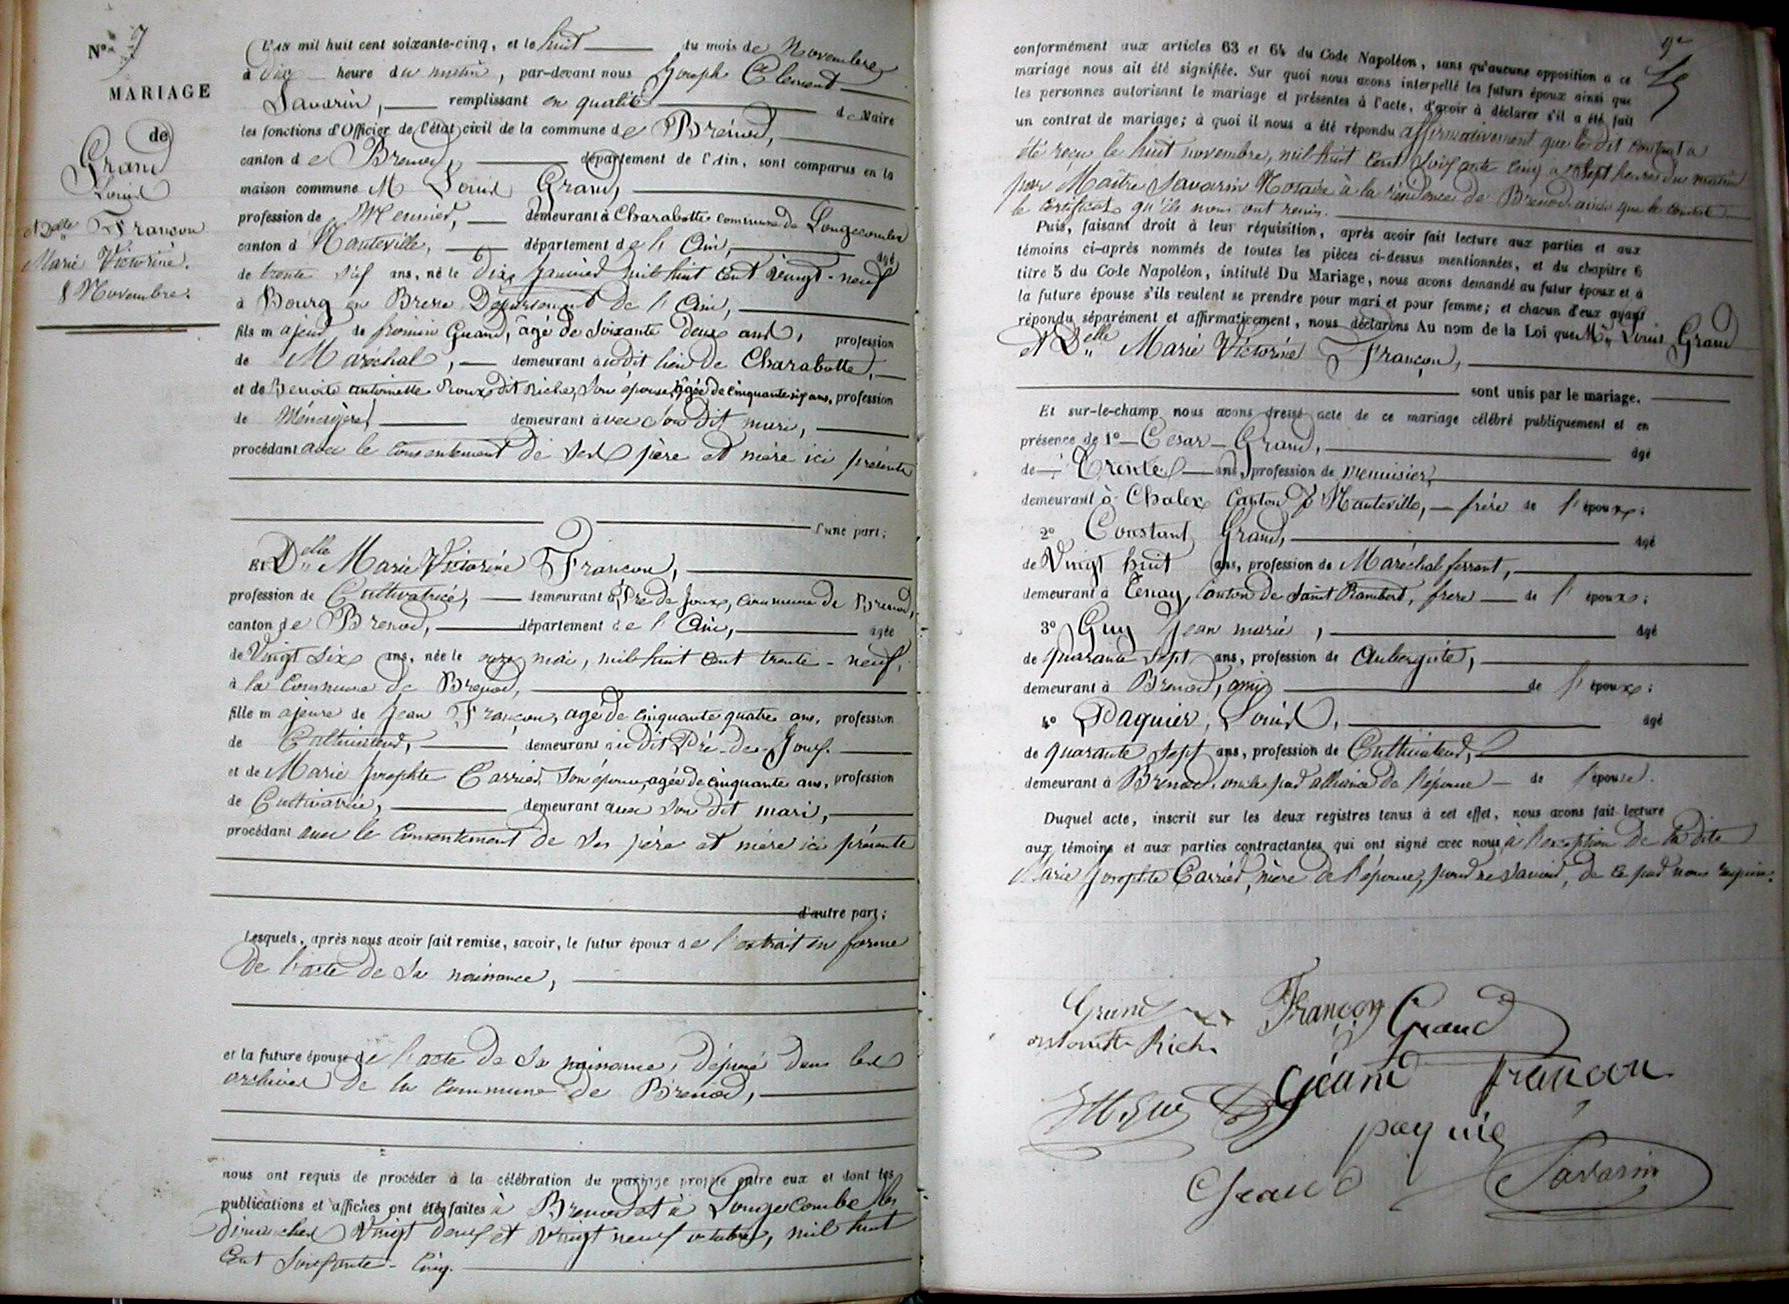 N° 9
MARIAGE
de
Grand
Louis
et Delle Françon
Marie Victorine.
8 Novembre.
L'an mil huit cent soixante-cinq, et le huit du mois de Novembre
à dix heure du matin, par-devant nous Joseph Clément
Savarin, remplissant en qualité de Maire
les fonctions d'Officier de l'état civil de la commune de Brénod,
canton de Brenod, département de l'Ain, sont comparus en la
maison commune M Louis Grand,
profession de Meunier, demeurant à Charabotte commune de Longecombe
canton d'Hauteville, département de l'Ain, âgé
de trente six ans, né le dix Janvier mil huit cent vingt-neuf
à Bourg en Bresse Département de l'Ain,
fils majeur de Grand, âgé de soixante deux ans, profession
de Marechal, demeurant au dit lieu de Charabotte,
et de Benoite antoinette Roux dit Riche, son épouse, âgée de cinquante six ans, profession
de Ménagère, demeurant avec son dit mari,
procédant avec le consentement de ses père et mère ici présents
d'une part;
Et Delle Marie Victorine Françon,
profession de Cultivatrice, demeurant à Pré de Joux, commune de Brenod,
canton de Brenod, département de l'Ain, âgée
de vingt six ans, née le onze mai, mil huit cent trente-neuf,
à la Commune de Brenod,
fille majeure de Jean Françon, agé de cinquante quatre ans, profession
de Cultivateur, demeurant au dit Pré-de-Joux.
et de Marie Josephte Carrier, son épouse, agée de cinquante ans, profession
de Cultivatrice, demeurant avec son dit mari,
procédant avec le consentement de ses père et mère ici présents
d'autre part;
Lesquels, après nous avoir fait remise, savoir, le futur époux de l'extrait en forme
de l'acte de sa naissance,
et la future épouse de l'acte de sa naissance, déposé dans les
archives de la commune de Brenod,
nous ont requis de procéder à la célébration du mariage projeté entre eux et dont les
publications et affiches ont été faites à Brenod et à Longecombe les
dimanches vingt deux et vingt neuf octobre, mil huit
cent soixante-cinq.
conformément aux articles 63 et 64 du Code Napoléon, sans qu'aucune opposition à ce
mariage nous ait été signifiée. Sur quoi nous avons interpellé les futurs époux ainsi que
les personnes autorisant le mariage et présentes à l'acte, d'avoir à déclarer s'il a été fait
un contrat de mariage; à quoi il nous a été répondu affirmativement que le dit contrat a
été reçu le huit novembre, mil huit cent soixante cinq à sept heures du matin
par Maître Savarin Notaire à la résidence de Brenod ainsi que le constate
le certificat qu'ils nous ont remis.
Puis, faisant droit à leur réquisition, après avoir fait lecture aux parties et aux
témoins ci-après nommés de toutes les pièces ci-dessus mentionnées, et du chapitre 6
titre 5 du Code Napoléon, intitulé Du Mariage, nous avons demandé au futur époux et à
la future épouse s'ils veulent se prendre pour mari et pour femme; et chacun d'eux ayant
répondu séparément et affirmativement, nous déclarons Au nom de la Loi que Mr Louis Grand
et Delle Marie Victorine Françon,
sont unis par le mariage.
Et sur-le-champ nous avons dressé acte de ce mariage célébré publiquement et en
présence de 1° Cesar Grand, âgé
de Trente ans, profession de menuisier,
demeurant à Chaley Canton d'Hauteville, frère de l'époux;
2° Constant Grand, âgé
de Vingt huit ans, profession de Maréchal ferrant,
demeurant à Tenay, Canton de Saint Rambert, frère de l'époux;
3° Guy Jean marie, âgé
de quarante sept ans, profession de Aubergiste,
demeurant à Brenod, ami de l'époux;
4° Paquier, Louis, âgé
de quarante sept ans, profession de Cultivateur,
demeurant à Brenod, oncle par alliance de l'épouse de l'épouse.
Duquel acte, inscrit sur les deux registres tenus à cet effet, nous avons fait lecture
aux témoins et aux parties contractantes qui ont signé avec nous, à l'exception de la dite
Marie Josephte Carrier, mère de l'épouse, pour ne savoir, de ce par nous requise.
Grand Françon Grand
antoinette Riche
Grand Françon
JM Guy
paquie
Grand Savarin